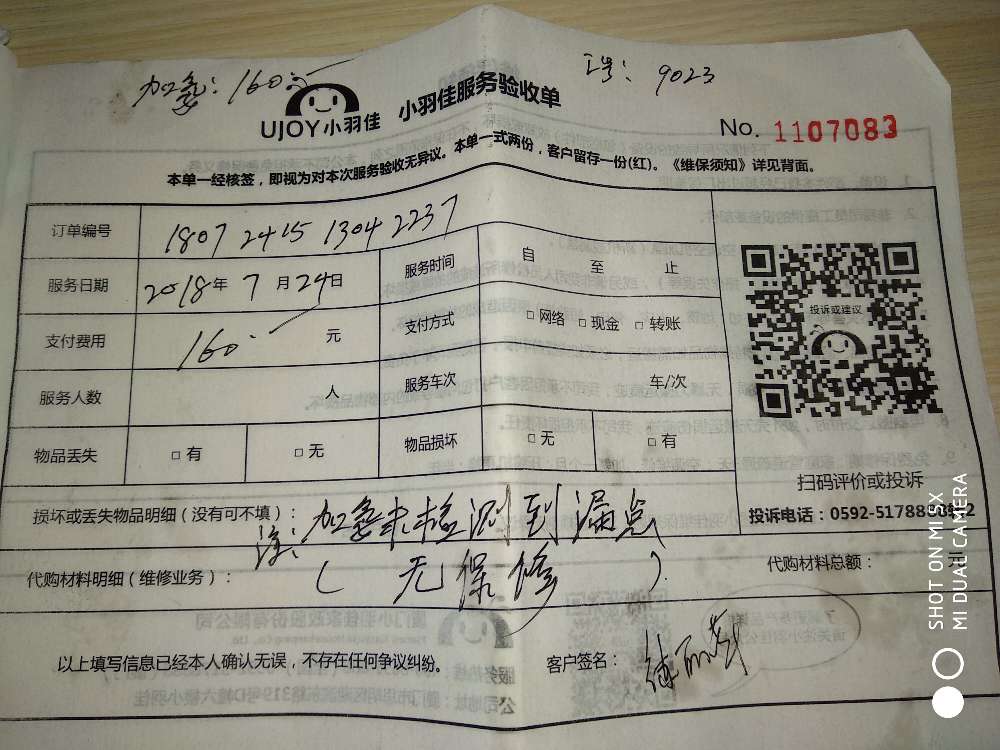 加氟：160元
工号：9023
UJOY小羽佳 小羽佳服务验收单
No. 1107083
本单一经核签，即视为对本次服务验收无异议。本单一式两份，客户留存一份(红)。《维保须知》详见背面。
订单编号 1807 2415 1304 2237
服务日期 2018年 7月 24日 服务时间 自 至 止
支付费用 160.- 元 支付方式 □ 网络 □ 现金 □ 转账
服务人数 人 服务车次 车/次
物品丢失 □ 有 □ 无 物品损坏 □ 无 □ 有
投诉或建议
扫码评价或投诉
损坏或丢失物品明细（没有可不填）：加氟未检测到漏点
注：
投诉电话：0592-517885
代购材料明细（维修业务）： （无保修） 代购材料总额： 元
以上填写信息已经本人确认无误，不存在任何争议纠纷。 客户签名：
SHOT ON MI 5X
MI DUAL CAMERA